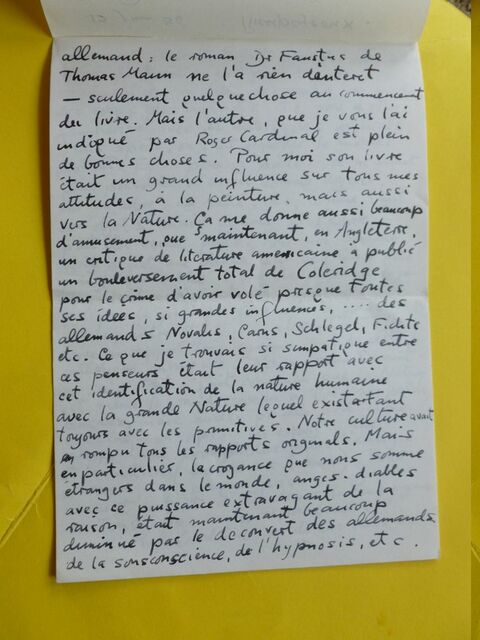 allemand: le roman Dr Faustus de
Thomas Mann ne l'a rien d'interet
— seulement quelque chose au commencement
du livre. Mais l'autre, que je vous l'ai
indiqué par Roger Cardinal est plein
de bonnes choses. Pour moi son livre
était un grand influence sur tous mes
attitudes, à la peinture, mais aussi
vers la Nature. Ça me donne aussi beaucoup
d'amusement, que maintenant, en Angleterre,
un critique de literature americaine a publié
un bouleversement total de Coleridge
pour le crime d'avoir volé presque toutes
ses idees, si grandes influences, .... des
allemands Novalis, Carus, Schlegel, Fichte
etc. Ce que je trouvais si simpatique entre
ces penseurs était leur rapport avec
cet identification de la nature humaine
avec la grande Nature lequel existait
toujours avec les primitives. Notre culture avait
rompu tous les rapports originals. Mais
en particulier, la croyance que nous somme
étrangers dans le monde, anges-diables
avec ce puissance extravagant de la
raison, était maintenant beaucoup
diminué par le decouvert des allemands
de la sonsconscience, de l'hypnosis, etc.